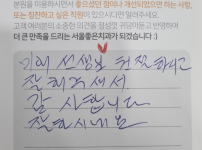 본원을 이용하시면서 좋으셨던 점이나 개선되었으면 하는 사항,
또는 칭찬하고 싶은 직원이 있으시다면 알려주세요.
고객 여러분의 소중한 의견을 참성껏 귀담아듣고 반영하여
더 큰 만족을 드리는 서울좋은치과가 되겠습니다 :)
선생님 친절하고
잘 해주셔서
감사합니다